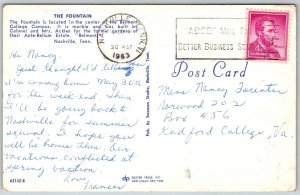 THE FOUNTAIN
The Fountain is located in the center of the Belmont
College Campus. It is marble and was built by
Colonel and Mrs. Acklen for the formal gardens of
their Ante-Bellum Estate, "Belmont".
Nashville, Tenn.
Hi Nancy,
Just thought I'd tell you
I'm coming home May 30th
for the week end. Then
I'll be going back to
Nashville for summer
school. I hope you
will be home then. Our
vacations conflicted at
spring vacation.
Love,
Frances
63142-B
DEXTER PRESS, INC.
WEST NYACK, NEW YORK
1963
BETTER BUSINESS
Post Card
Miss Nancy
Norwood 202
Box 456
Radford College, Va.